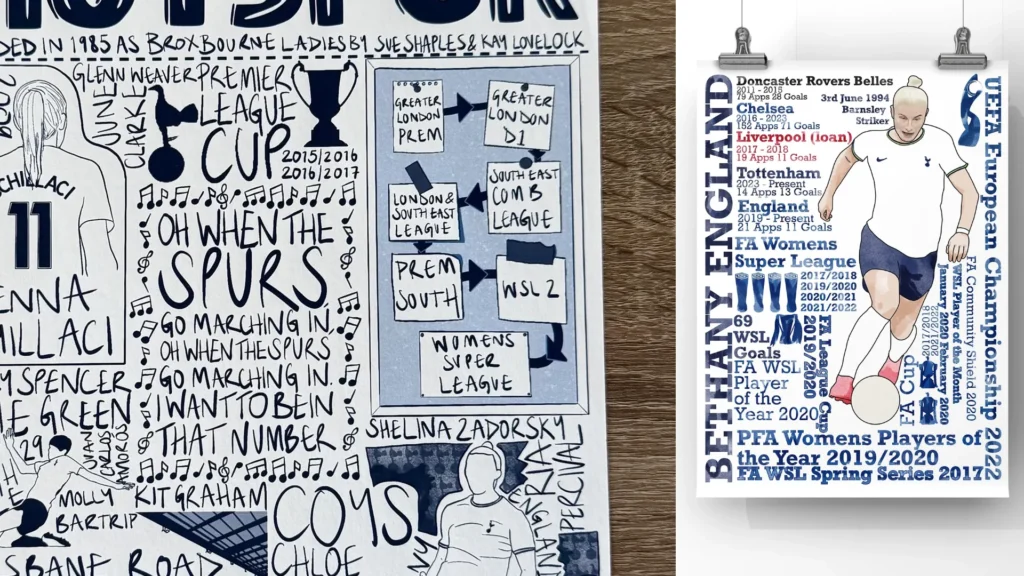 HOTSPUR
DED IN 1985 AS BROXBOURNE LADIES BY SUE SHAPLES & KAY LOVELOCK
GLENN WEAVER
JUNE
CLARKE
PREMIER
LEAGUE
CUP
2015/2016
2016/2017
CHILLACI
11
ENNA
HILLACI
OH WHEN THE
SPURS
GO MARCHING IN,
OH WHEN THE SPURS
GO MARCHING IN.
I WANT TO BE IN
THAT NUMBER
M SPENCER
IE GREEN
29
JUAN
CARLOS
AMOROS
MOLLY
BARTRIP
KIT GRAHAM
SBANE ROAD
COYS
CHLOE
GREATER
LONDON
PREM
GREATER
LONDON
D1
SOUTH EAST
COMB
LEAGUE
LONDON &
SOUTH EAST
LEAGUE
PREM
SOUTH
WSL 2
WOMENS
SUPER
LEAGUE
SHELINA ZADORSKY
RIA
PERCIVAL
ENGL
BETHANY ENGLAND
Doncaster Rovers Belles
2011 - 2015
79 Apps 28 Goals
Chelsea
2016 - 2023
162 Apps 71 Goals
Liverpool (loan)
2017 - 2018
19 Apps 11 Goals
Tottenham
2023 - Present
14 Apps 13 Goals
England
2019 - Present
21 Apps 11 Goals
3rd June 1994
Barnsley
Striker
FA Womens
Super League
2017/2018
2019/2020
2020/2021
2021/2022
69
WSL
Goals
FA WSL
Player
of the
Year 2020
FA League Cup
2019/2020
FA Cup
WSL Player of the Month
January 2020 February 2020
FA Community Shield 2020
UEFA European Championship 2022
PFA Womens Players of
the Year 2019/2020
FA WSL Spring Series 2017